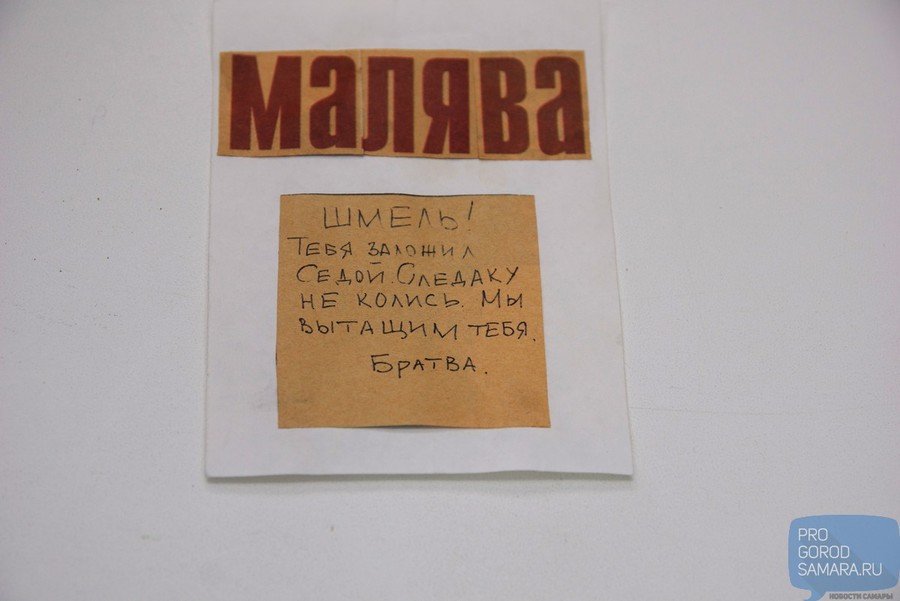 малява
ШМЕЛЬ!
ТЕБЯ ЗАЛОЖИЛ
СЕДОЙ. СЛЕДАКУ
НЕ КОЛИСЬ. МЫ
ВЫТАЩИМ ТЕБЯ.
БРАТВА.
PRO
GOROD
SAMARA.RU
НОВОСТИ САМАРЫ